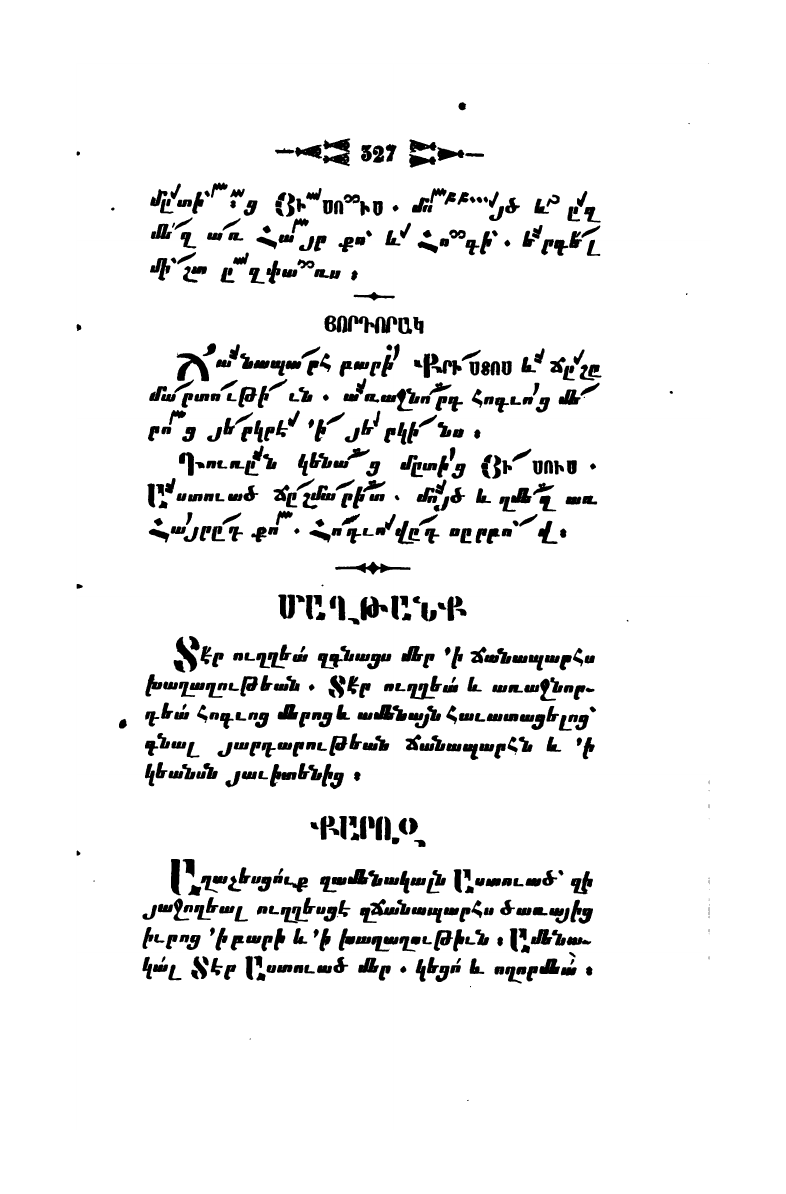 327
մըտի՝ց Յիսուս. մույծ և ըզ
մեզ առ Հայր քո՝ և Հոգի՝. երգել
միշտ ըզփառս։
ՅՈՐԴՈՐԱԿ
Ճանապարհ բարի՛ Քրիստոս և ճըշը
մարտութիւն. առաջնորդ Հոգւո՛ց մե
րոց յերկրէ ՚ի յերկինս։
Դուռըն կենաց մըտի՛ց Յիսուս.
Աստուած ճըշմարիտ. մուծ և զմեզ առ
Հա՛յրըդ քո. Հոգւովըդ սըրբո՝վ։
ՄԱՂԹԱՆՔ
Տէր ուղղեա՛ զգնացս մեր ՚ի ճանապարհս
խաղաղութեան. Տէր ուղղեա՛ և առաջնոր-
դեա՛ Հոգւոց մերոց և ամենայն Հաւատացելոց՝
գնալ յարդարութեան ճանապարհն և ՚ի
կեանսն յաւիտենից։
ՔԱՐՈԶ
Աղաչեսցո՛ւք զամենակալն Աստուած՝ զի
յաջողեալ ուղղեսցէ զճանապարհս ծառայից
իւրոց ՚ի բարի և ՚ի խաղաղութիւն։ Ամենա-
կա՛լ Տէր Աստուած մեր. կեցո՛ և ողորմեա՛։